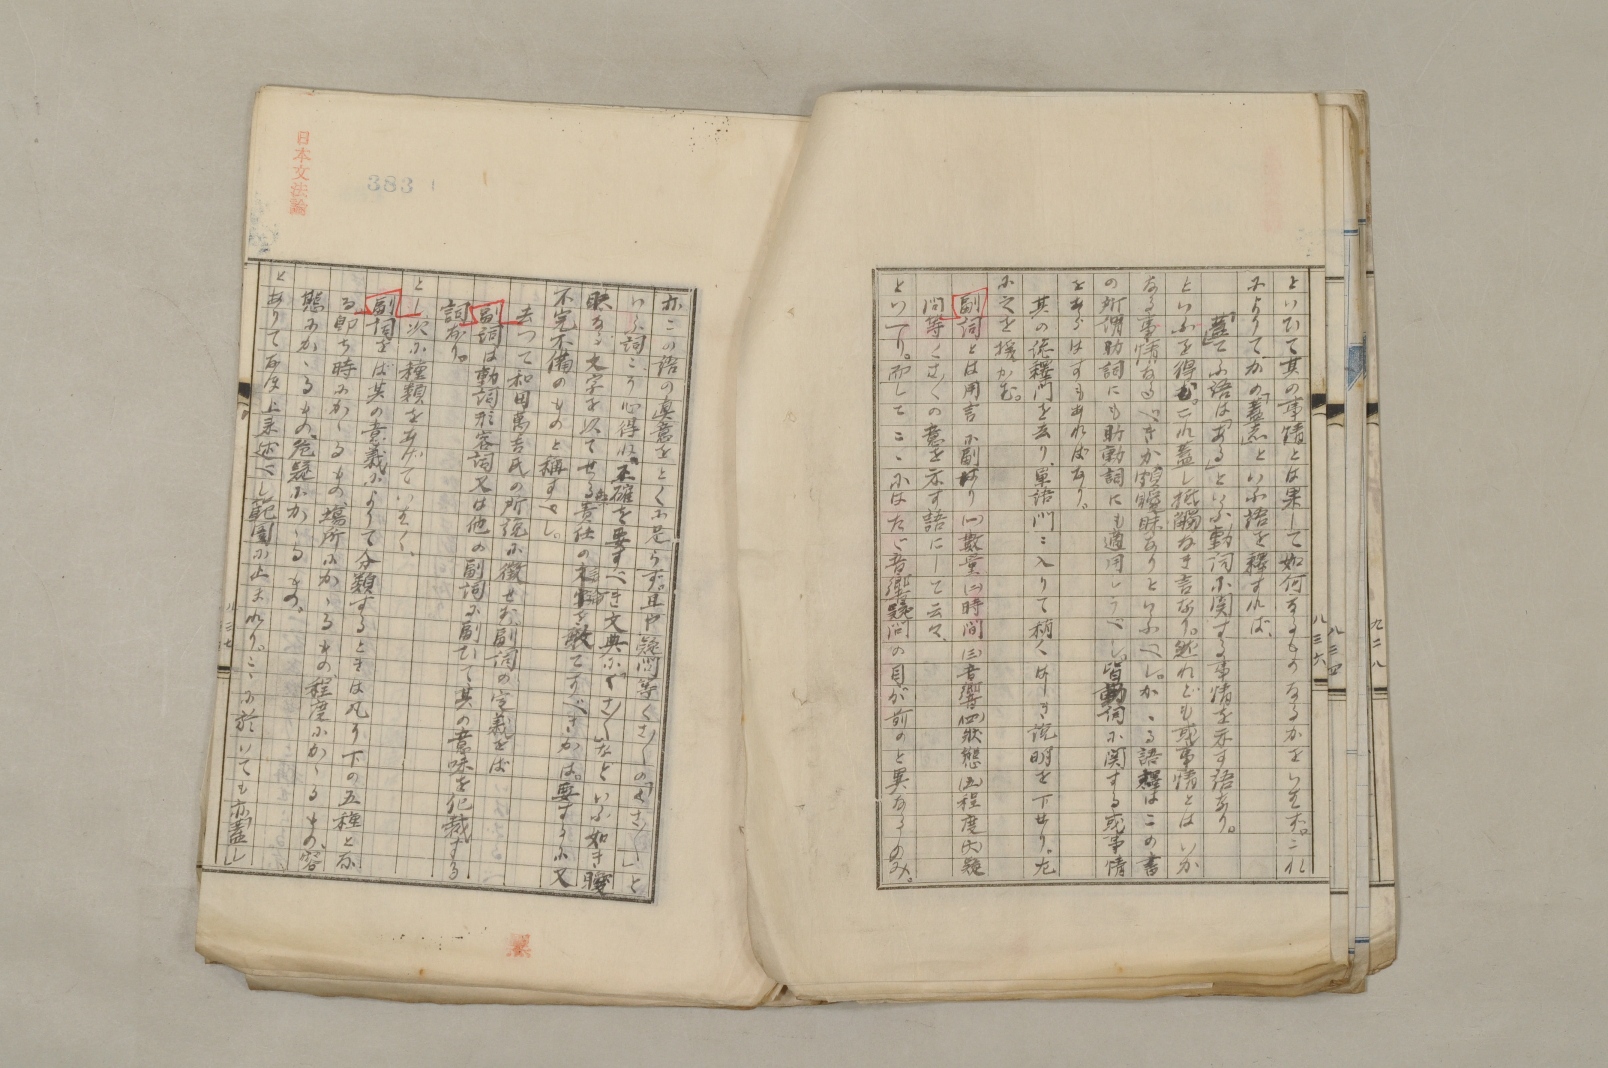 といひて其の事情とは果して如何なるものなるかをいはず。これ
によりてかの「蓋志」といふ語を釋すれば、
「蓋」てふ語は「ある」といふ動詞に関する事情を示す語なり。
といふを得む。これ蓋し抵觸なき言なり。然れども或事情とはいか
なる事情なるべきか頗曖昧なりといふべし。かゝる語釋はこの書
の所謂助詞にも助動詞にも適用しうべし。皆動詞に関する或事情
をあらはすものあればなり。
其の語釋門を去り、単語門に入りて稍くはしき説明を下せり。左
に之を援かむ。
副詞とは用言に副はり(一)数量(二)時間(三)音響(四)状態(五)程度(六)疑
問等くさ〲の意を示す語にして云々、
といへり。而してこゝにはたゞ音響疑問の目が前のと異なるのみ。
亦この語の眞意をとくに足らず。且や疑問等くさ〲の「くさ〲」と
いふ詞こそ心得ね。正確を要すべき文典に「くさ〲」などいふ如き曖
昧なる文字を以てせる
不完不備のものと稱すべし。
去つて和田萬吉氏の所説に徴せむ。副詞の定義をば
副詞は動詞形容詞又は他の副詞に副ひて其の意味を化裁する
詞なり。
とし次に種類をあげていはく、
副詞をば其の意義によりて分類するときは凡そ下の五種とな
る即ち時にかゝるもの、場所にかゝるもの、程度にかゝるもの、容
態にかゝるもの、疑にかゝるもの、
とありて
範圍に止まれり。こゝに於いても亦蓋し
八三六
八三四
九二八
八三七
日本文法論
383